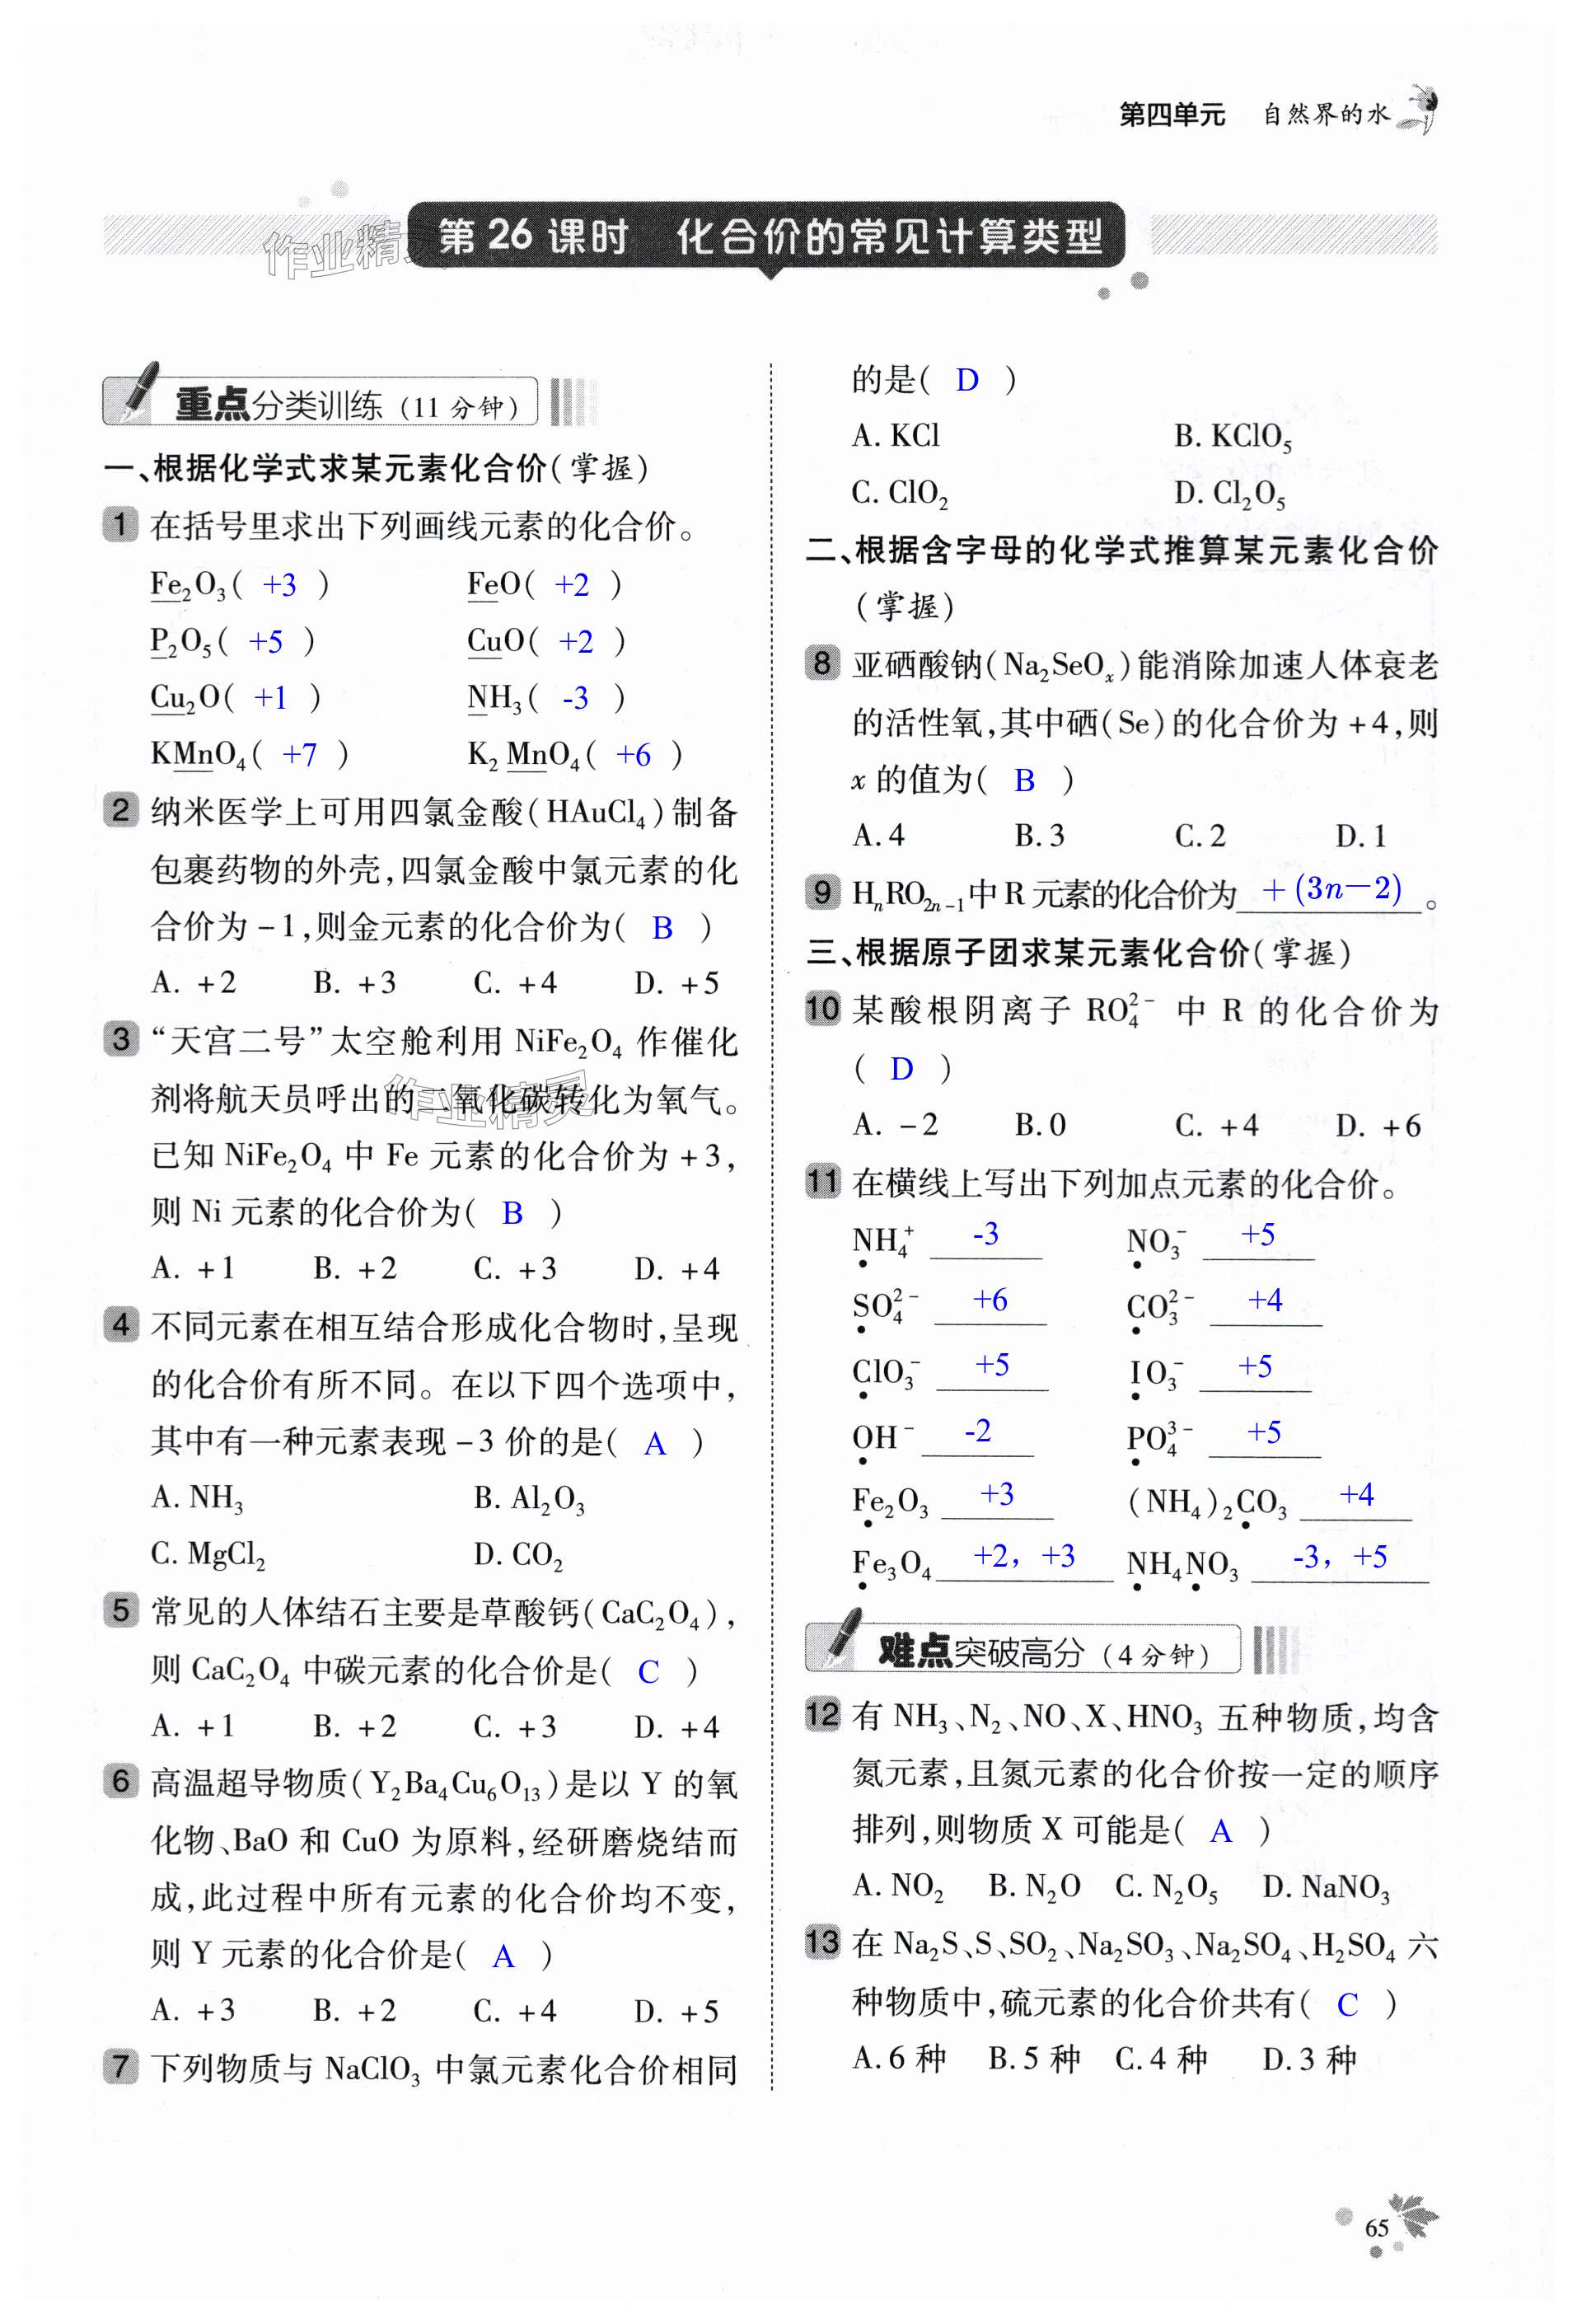 第四单元 自然界的水
第 26 课时 化合价的常见计算类型
作业精灵
重点分类训练(11 分钟)
一、根据化学式求某元素化合价(掌握)
1 在括号里求出下列画线元素的化合价。
Fe₂O₃( +3 ) FeO( +2 )
P₂O₅( +5 ) CuO( +2 )
Cu₂O( +1 ) NH₃( -3 )
KMnO₄( +7 ) K₂MnO₄( +6 )
2 纳米医学上可用四氯金酸(HAuCl₄)制备
包裹药物的外壳,四氯金酸中氯元素的化
合价为 -1,则金元素的化合价为( B )
A. +2 B. +3 C. +4 D. +5
3 “天宫二号”太空舱利用 NiFe₂O₄ 作催化
剂将航天员呼出的二氧化碳转化为氧气。
作业精灵
已知 NiFe₂O₄ 中 Fe 元素的化合价为 +3,
则 Ni 元素的化合价为( B )
A. +1 B. +2 C. +3 D. +4
4 不同元素在相互结合形成化合物时,呈现
的化合价有所不同。在以下四个选项中,
其中有一种元素表现 -3 价的是( A )
A. NH₃ B. Al₂O₃
C. MgCl₂ D. CO₂
5 常见的人体结石主要是草酸钙(CaC₂O₄),
则 CaC₂O₄ 中碳元素的化合价是( C )
A. +1 B. +2 C. +3 D. +4
6 高温超导物质(Y₂Ba₄Cu₆O₁₃)是以 Y 的氧
化物、BaO 和 CuO 为原料,经研磨烧结而
成,此过程中所有元素的化合价均不变,
则 Y 元素的化合价是( A )
A. +3 B. +2 C. +4 D. +5
7 下列物质与 NaClO₃ 中氯元素化合价相同
的是( D )
A. KCl B. KClO₅
C. ClO₂ D. Cl₂O₅
二、根据含字母的化学式推算某元素化合价
(掌握)
8 亚硒酸钠(Na₂SeOₓ)能消除加速人体衰老
的活性氧,其中硒(Se)的化合价为 +4,则
x 的值为( B )
A. 4 B. 3 C. 2 D. 1
9 HₙRO₂ₙ₋₁中 R 元素的化合价为 +(3n-2) 。
三、根据原子团求某元素化合价(掌握)
10 某酸根阴离子 RO₄²⁻ 中 R 的化合价为
( D )
A. -2 B. 0 C. +4 D. +6
11 在横线上写出下列加点元素的化合价。
NH₄⁺ -3 NO₃⁻ +5
SO₄²⁻ +6 CO₃²⁻ +4
ClO₃⁻ +5 IO₃⁻ +5
OH⁻ -2 PO₄³⁻ +5
Fe₂O₃ +3 (NH₄)₂CO₃ +4
Fe₃O₄ +2,+3 NH₄NO₃ -3,+5
难点突破高分(4 分钟)
12 有 NH₃、N₂、NO、X、HNO₃ 五种物质,均含
氮元素,且氮元素的化合价按一定的顺序
排列,则物质 X 可能是( A )
A. NO₂ B. N₂O C. N₂O₅ D. NaNO₃
13 在 Na₂S、S、SO₂、Na₂SO₃、Na₂SO₄、H₂SO₄ 六
种物质中,硫元素的化合价共有( C )
A. 6 种 B. 5 种 C. 4 种 D. 3 种
65